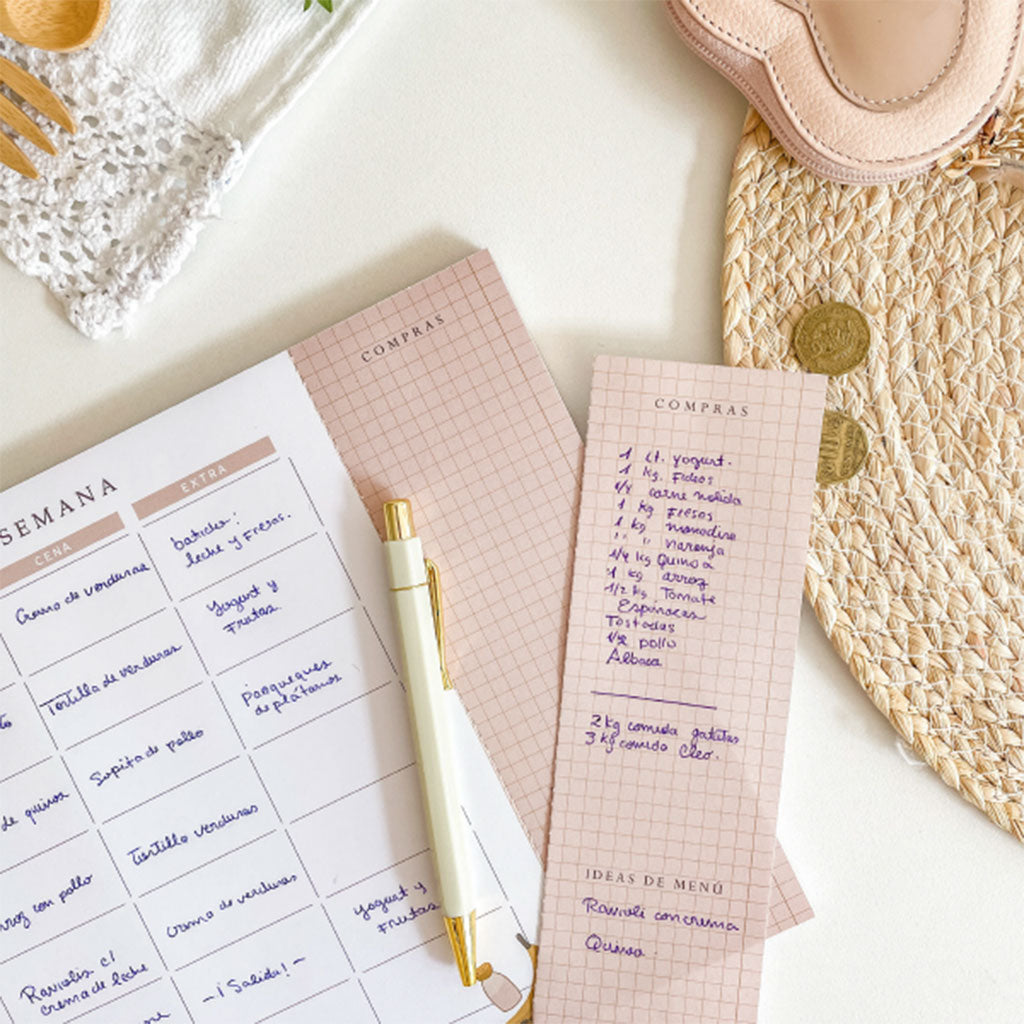 COMPRAS
SEMANA
CENA
EXTRA
Crema de verduras
Tortilla de verduras
Sopita de pollo
de quinoa
Tortilla verduras
con pollo
Crema de verduras
Raviolis c/
crema de leche
- ¡Salida! -
batidos:
leche y Fresas.
Yogurt y
Frutas
Panqueques
de plátanos
Yogurt y
Frutas
COMPRAS
1 Lt. yogurt.
1 kg. Fideos
1/4 carne molida
1 kg Fresas
1 kg mandarina
" " naranja
1/4 kg Quinoa
1 kg arroz
1/2 kg. Tomate
Espinacas
Tostadas
1/2 pollo
Albaca
2 kg comida gatitas
3 kg comida Cleo.
IDEAS DE MENÚ
Ravioli con crema
Quinoa.